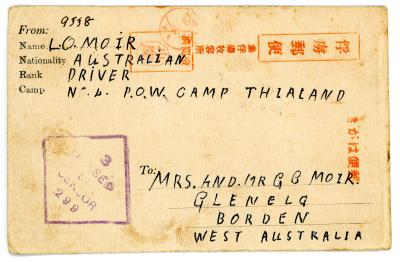 9338
From:
Name L.O. MOIR
Nationality AUSTRALIAN
Rank DRIVER
Camp No. 4 P.O.W. CAMP THIALAND
俘虜郵便
きがは便郵
3
PASSED
CENSOR
299
To: MRS. AND. MR G B MOIR.
GLENELG
BORDEN
WEST AUSTRALIA